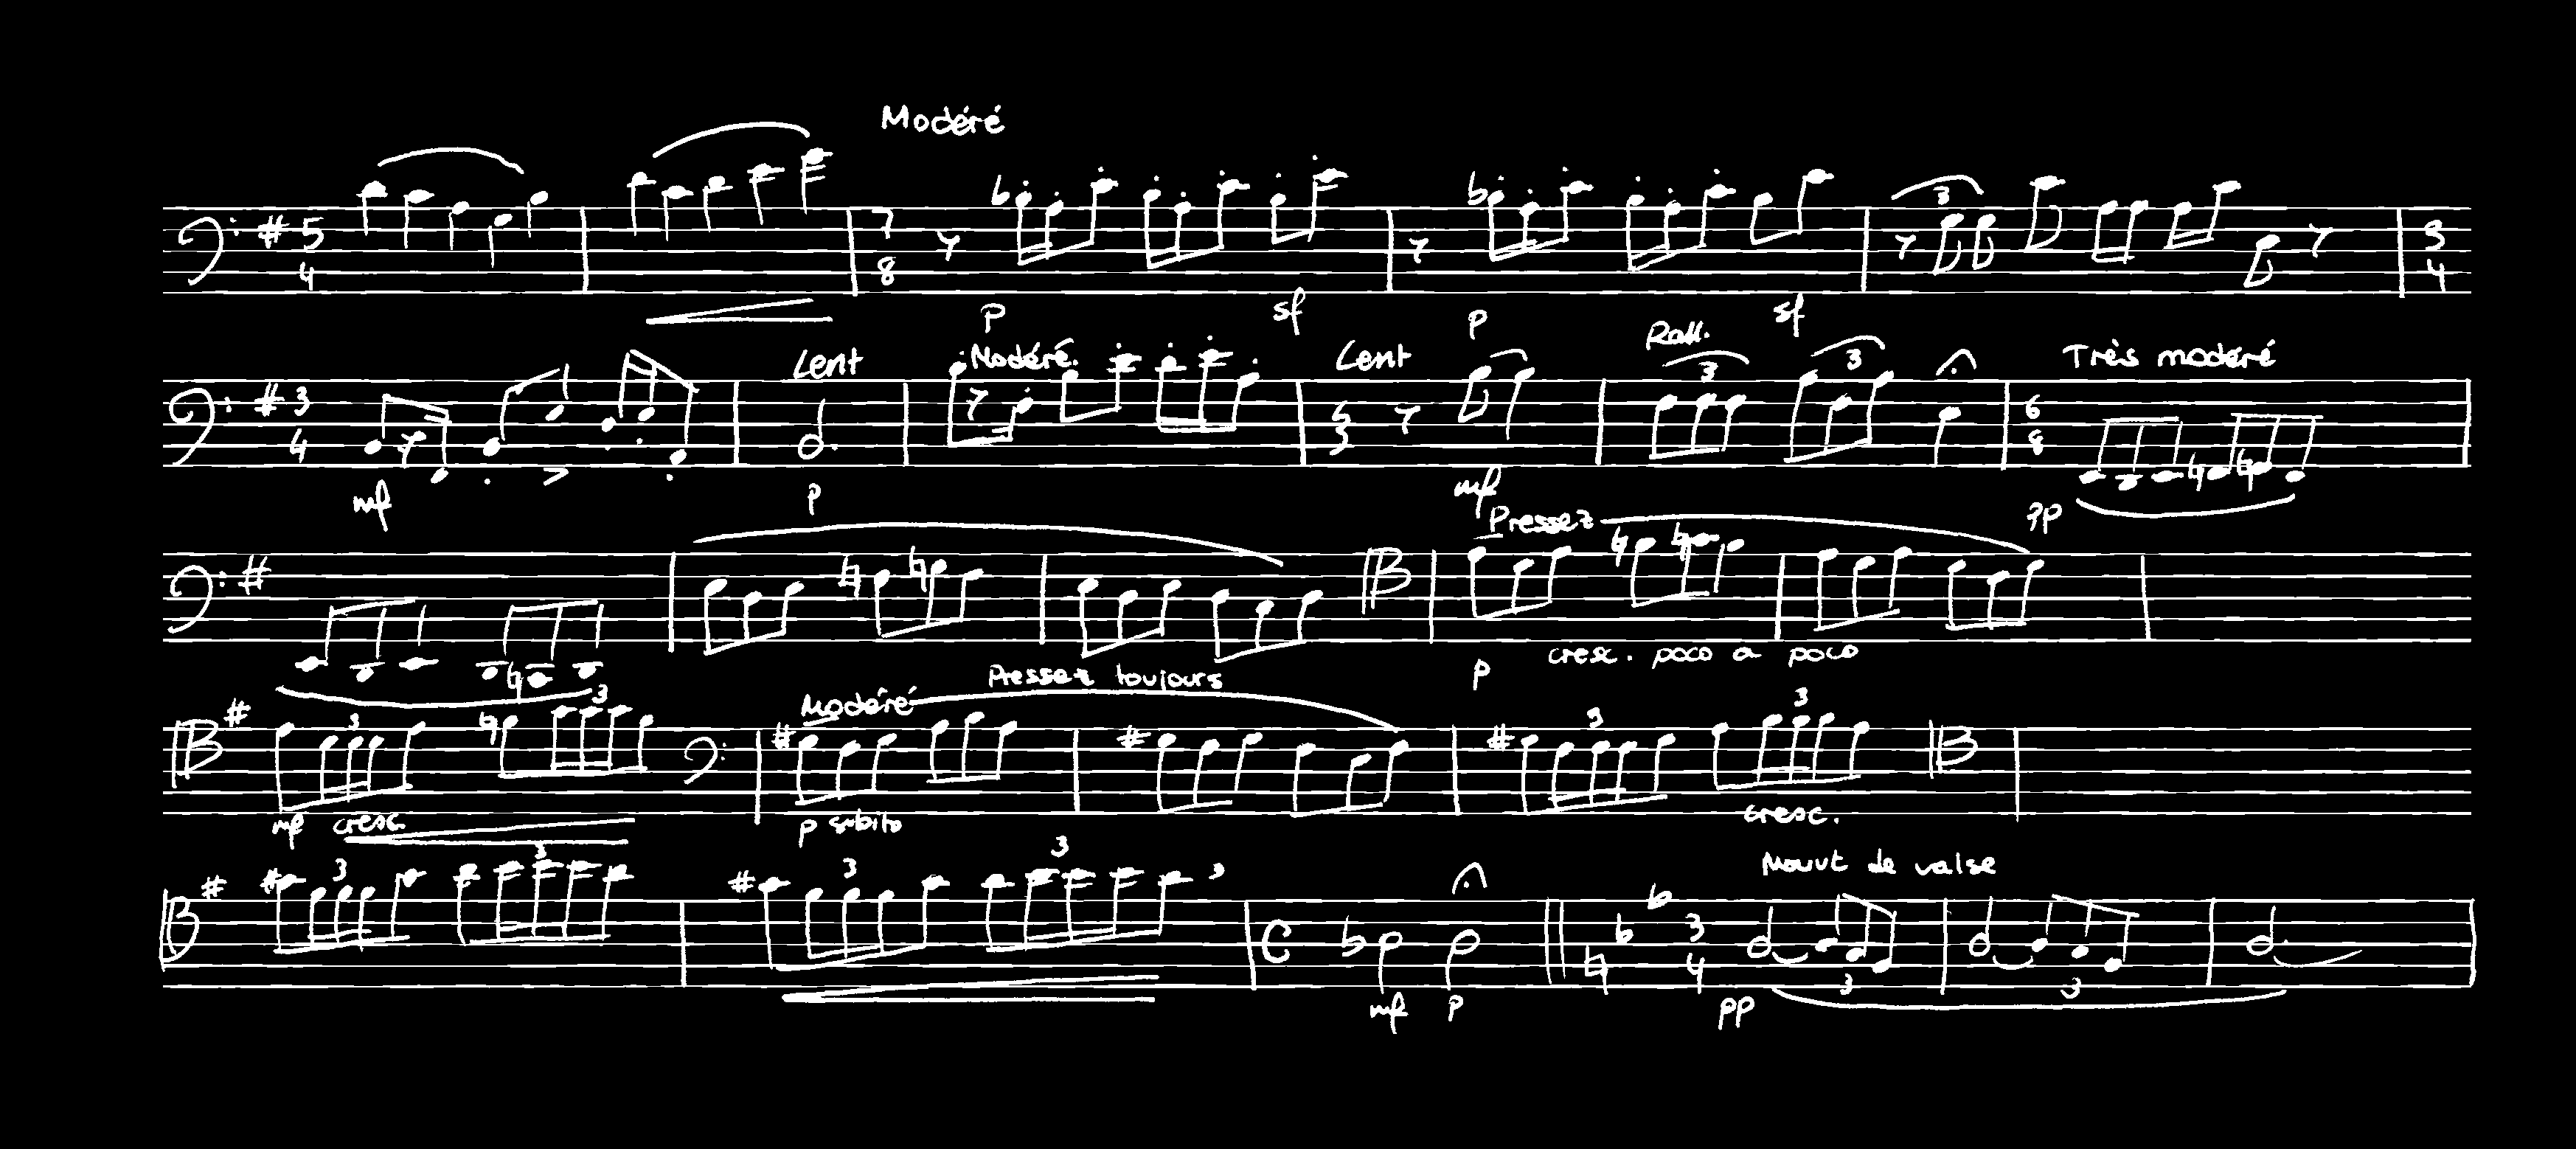 Modéré
5 4 7 8 3 3 4
p sf p sf
Lent Modéré Lent Rall. 3 3 Très modéré
3 4 6 8
mf p mf pp
Pressez
p cresc. poco a poco
3 3 Modéré Pressez toujours 3 3
mf cresc. p subito cresc.
3 3 3 3 3 Mouvt de valse
C 3 4
mf p pp 3 3